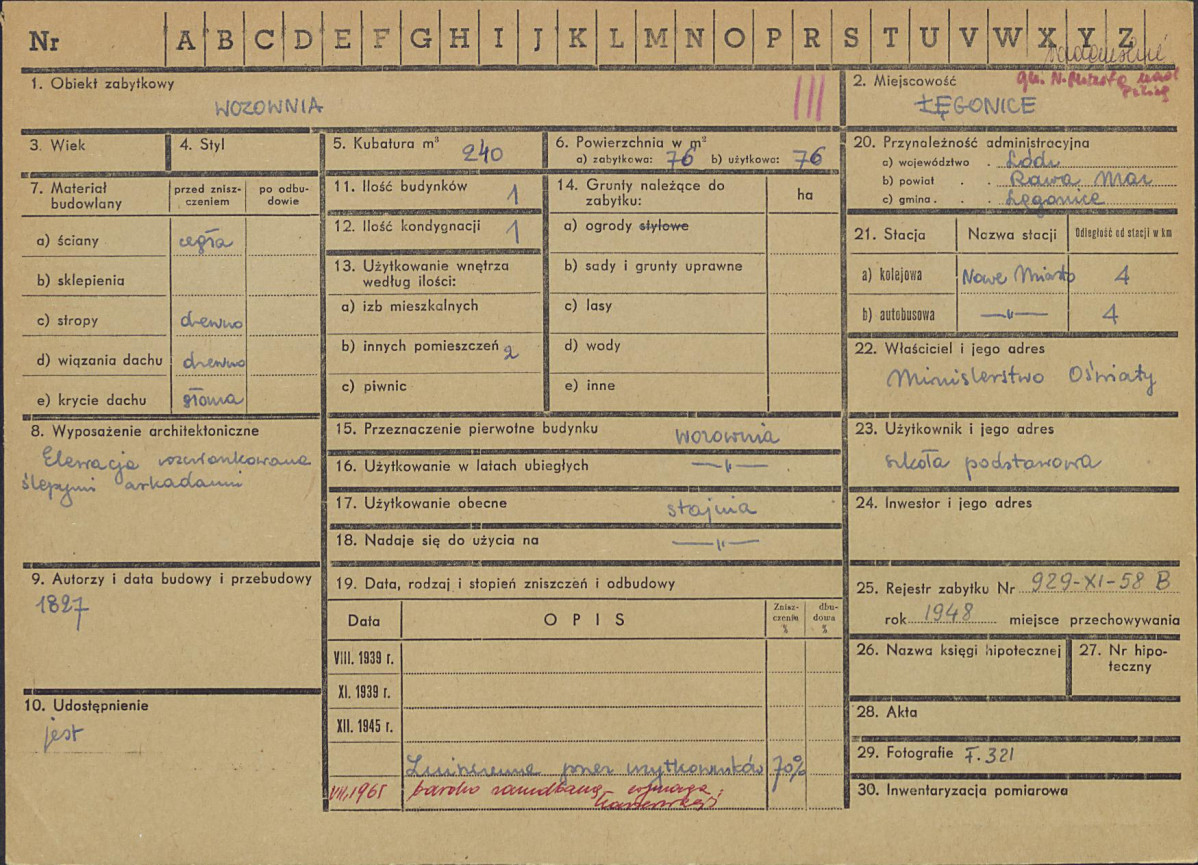 Nr A B C D E F G H I J K L M N O P R S T U V W X Y Z
1. Obiekt zabytkowy
WOZOWNIA
III
2. Miejscowość
gm. N. Miasto nad Pilicą
ŁĘGONICE
3. Wiek
4. Styl
5. Kubatura m³ 240
6. Powierzchnia w m²
a) zabytkowa: 76 b) użytkowa: 76
7. Materiał budowlany
przed zniszczeniem
po odbudowie
a) ściany cegła
b) sklepienia
c) stropy drewno
d) wiązania dachu drewno
e) krycie dachu słoma
8. Wyposażenie architektoniczne
Elewacja rozczłonkowana
ślepymi arkadami
9. Autorzy i data budowy i przebudowy
1827
10. Udostępnienie
jest
11. Ilość budynków 1
12. Ilość kondygnacji 1
13. Użytkowanie wnętrza
według ilości:
a) izb mieszkalnych
b) innych pomieszczeń 2
c) piwnic
14. Grunty należące do
zabytku:
ha
a) ogrody stylowe
b) sady i grunty uprawne
c) lasy
d) wody
e) inne
15. Przeznaczenie pierwotne budynku wozownia
16. Użytkowanie w latach ubiegłych —"—
17. Użytkowanie obecne stajnia
18. Nadaje się do użycia na —"—
19. Data, rodzaj i stopień zniszczeń i odbudowy
Data
OPIS
Zniszczenia %
dbudowa %
VIII. 1939 r.
XI. 1939 r.
XII. 1945 r.
Zniszczenia przez użytkowników 70%
VII.1965 bardzo zaniedbana – wymaga
konserwacji
20. Przynależność administracyjna
a) województwo . Łódź
b) powiat . . Rawa Maz
c) gmina . . Łęgonice
21. Stacja
Nazwa stacji
Odległość od stacji w km
a) kolejowa Nowe Miasto 4
b) autobusowa —"— 4
22. Właściciel i jego adres
Ministerstwo Oświaty
23. Użytkownik i jego adres
szkoła podstawowa
24. Inwestor i jego adres
25. Rejestr zabytku Nr 929-XI-58 B
rok 1948 miejsce przechowywania
26. Nazwa księgi hipotecznej
27. Nr hipoteczny
28. Akta
29. Fotografie F. 321
30. Inwentaryzacja pomiarowa